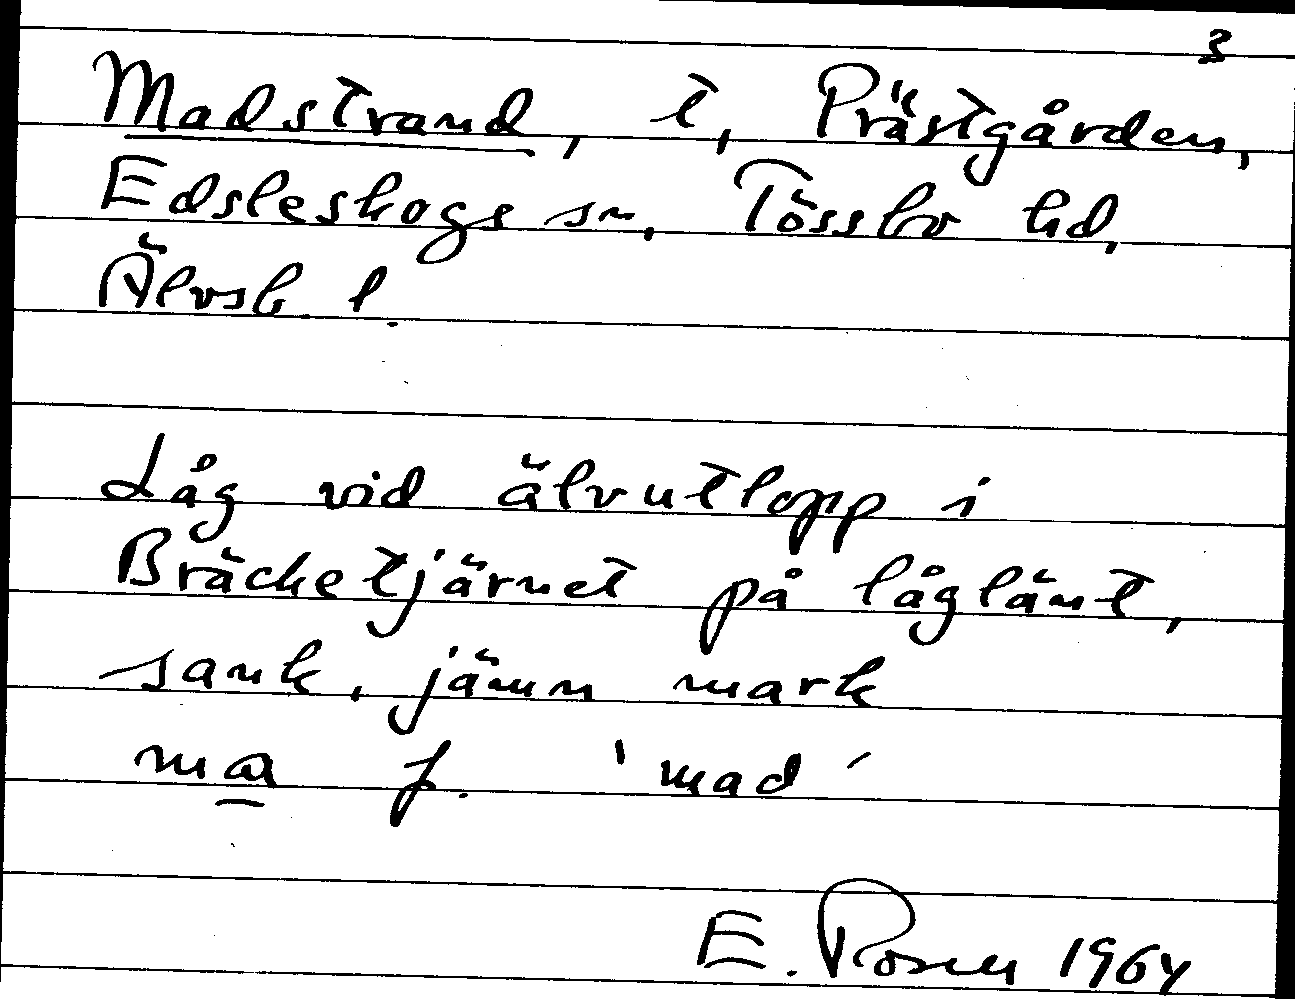 3
Madstrand, t, Prästgården,
Edsleskogs sn, Tössbo hd,
Älvsb. l.
Låg vid älvutlopp i
Bräcketjärnet på låglänt,
sank, jämn mark
ma f. 'mad'
E. Rosen 1964